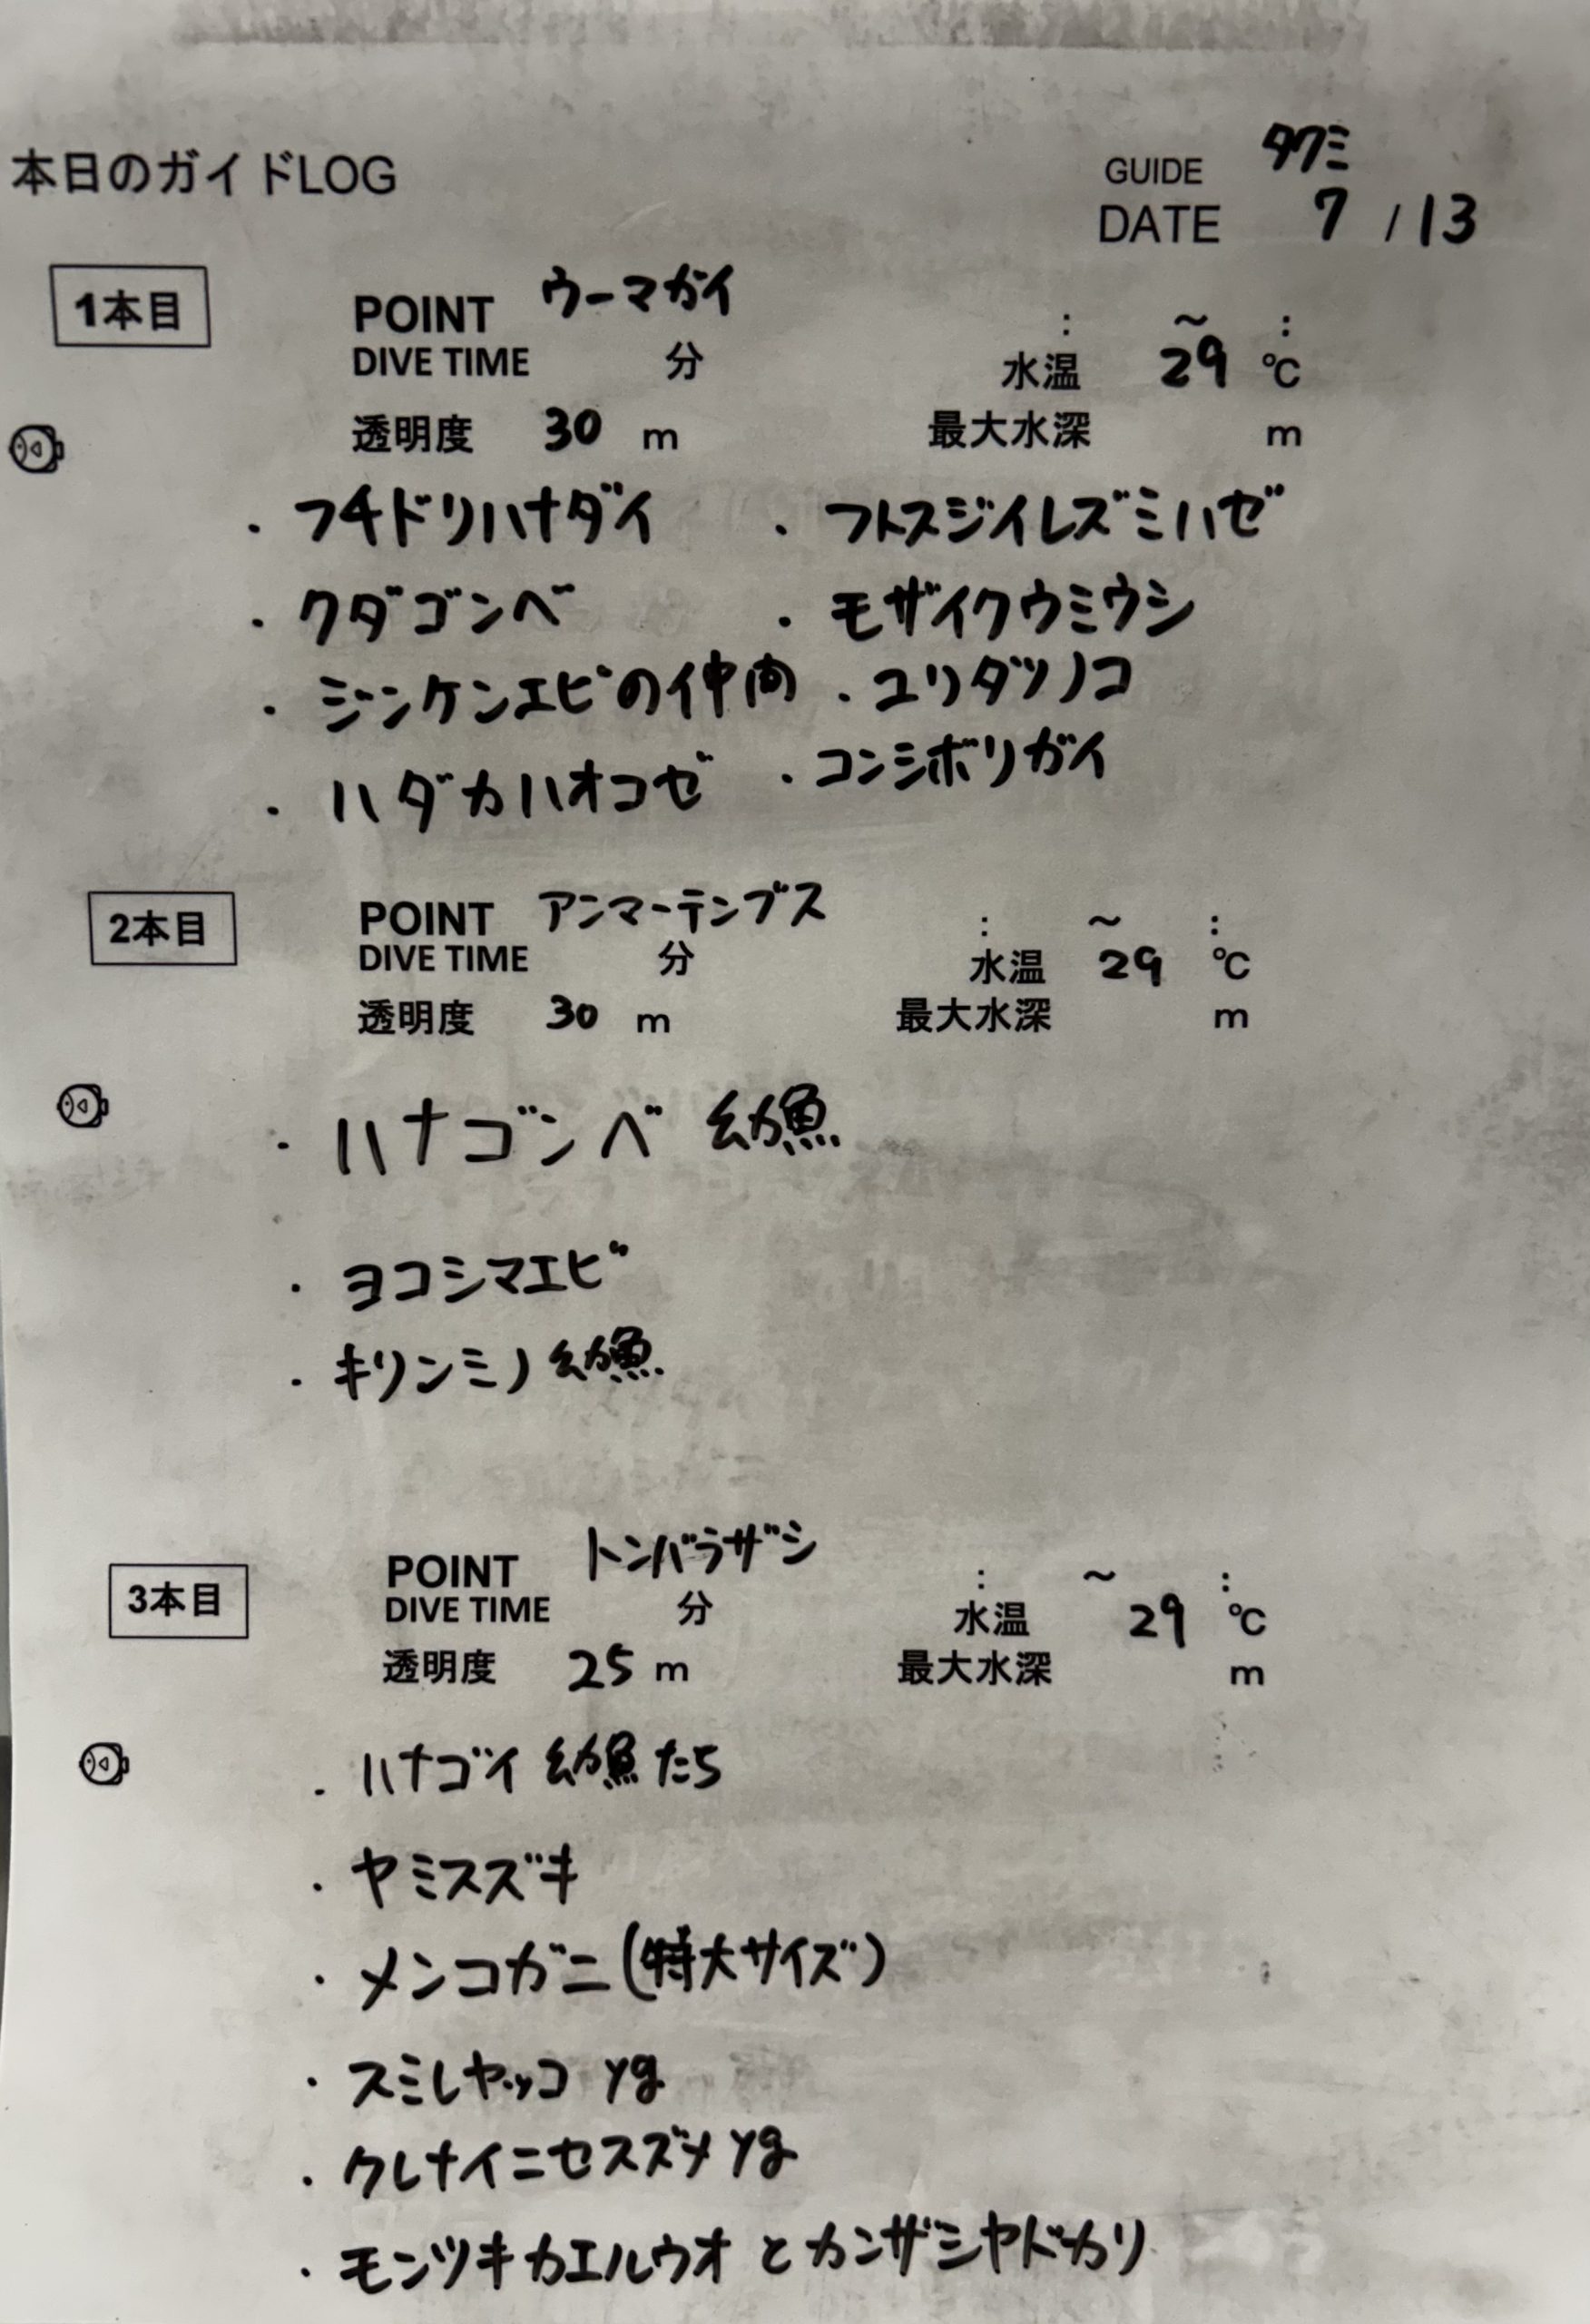 本日のガイドLOG
GUIDE タクミ
DATE 7 / 13
1本目
POINT ウーマガイ
: ～ :
DIVE TIME 分
水温 29 ℃
透明度 30 m
最大水深 m
・フチドリハナダイ ・フトスジイレズミハゼ
・クダゴンベ ・モザイクウミウシ
・ジンケンエビの仲間 ・ユリタツノコ
・ハダカハオコゼ ・コンシボリガイ
2本目
POINT アンマーテンブス
: ～ :
DIVE TIME 分
水温 29 ℃
透明度 30 m
最大水深 m
・ハナゴンベ 幼魚
・ヨコシマエビ
・キリンミノ 幼魚
3本目
POINT トンバラザシ
: ～ :
DIVE TIME 分
水温 29 ℃
透明度 25 m
最大水深 m
・ハナゴイ 幼魚たち
・ヤミスズキ
・メンコガニ(特大サイズ)
・スミレヤッコ yg
・クレナイニセスズメ yg
・モンツキカエルウオ とカンザシヤドカリ